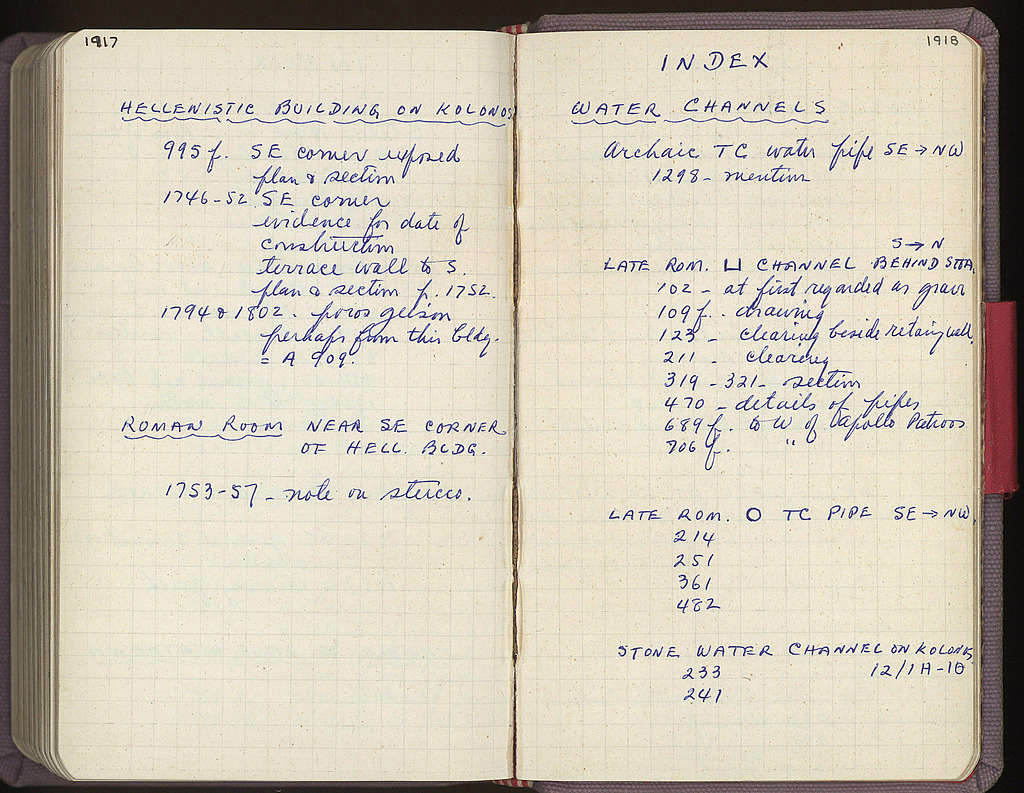 1917
HELLENISTIC BUILDING ON KOLONOS
995 f. SE corner exposed
plan & section
1746-52 SE corner
evidence for date of
construction
terrace wall to S.
plan & section p. 1752.
1794 & 1802. poros geison
perhaps from this bldg.
= A 909.
ROMAN ROOM NEAR SE CORNER
OF HELL. BLDG.
1753-57 - note on stucco.
1918
INDEX
WATER CHANNELS
Archaic TC water pipe SE → NW
1298 - mention
S → N
LATE ROM. ⊔ CHANNEL BEHIND STOA
102 - at first regarded as grave
109 f. . drawing
123 - clearing beside retaing wall.
211 - clearing
319 - 321 - section
470 - details of pipes
689 f. to W of Apollo Patroos
706 f. "
LATE ROM. O TC PIPE SE → NW.
214
251
361
482
STONE WATER CHANNEL ON KOLONOS
233 12/1Α-10
241